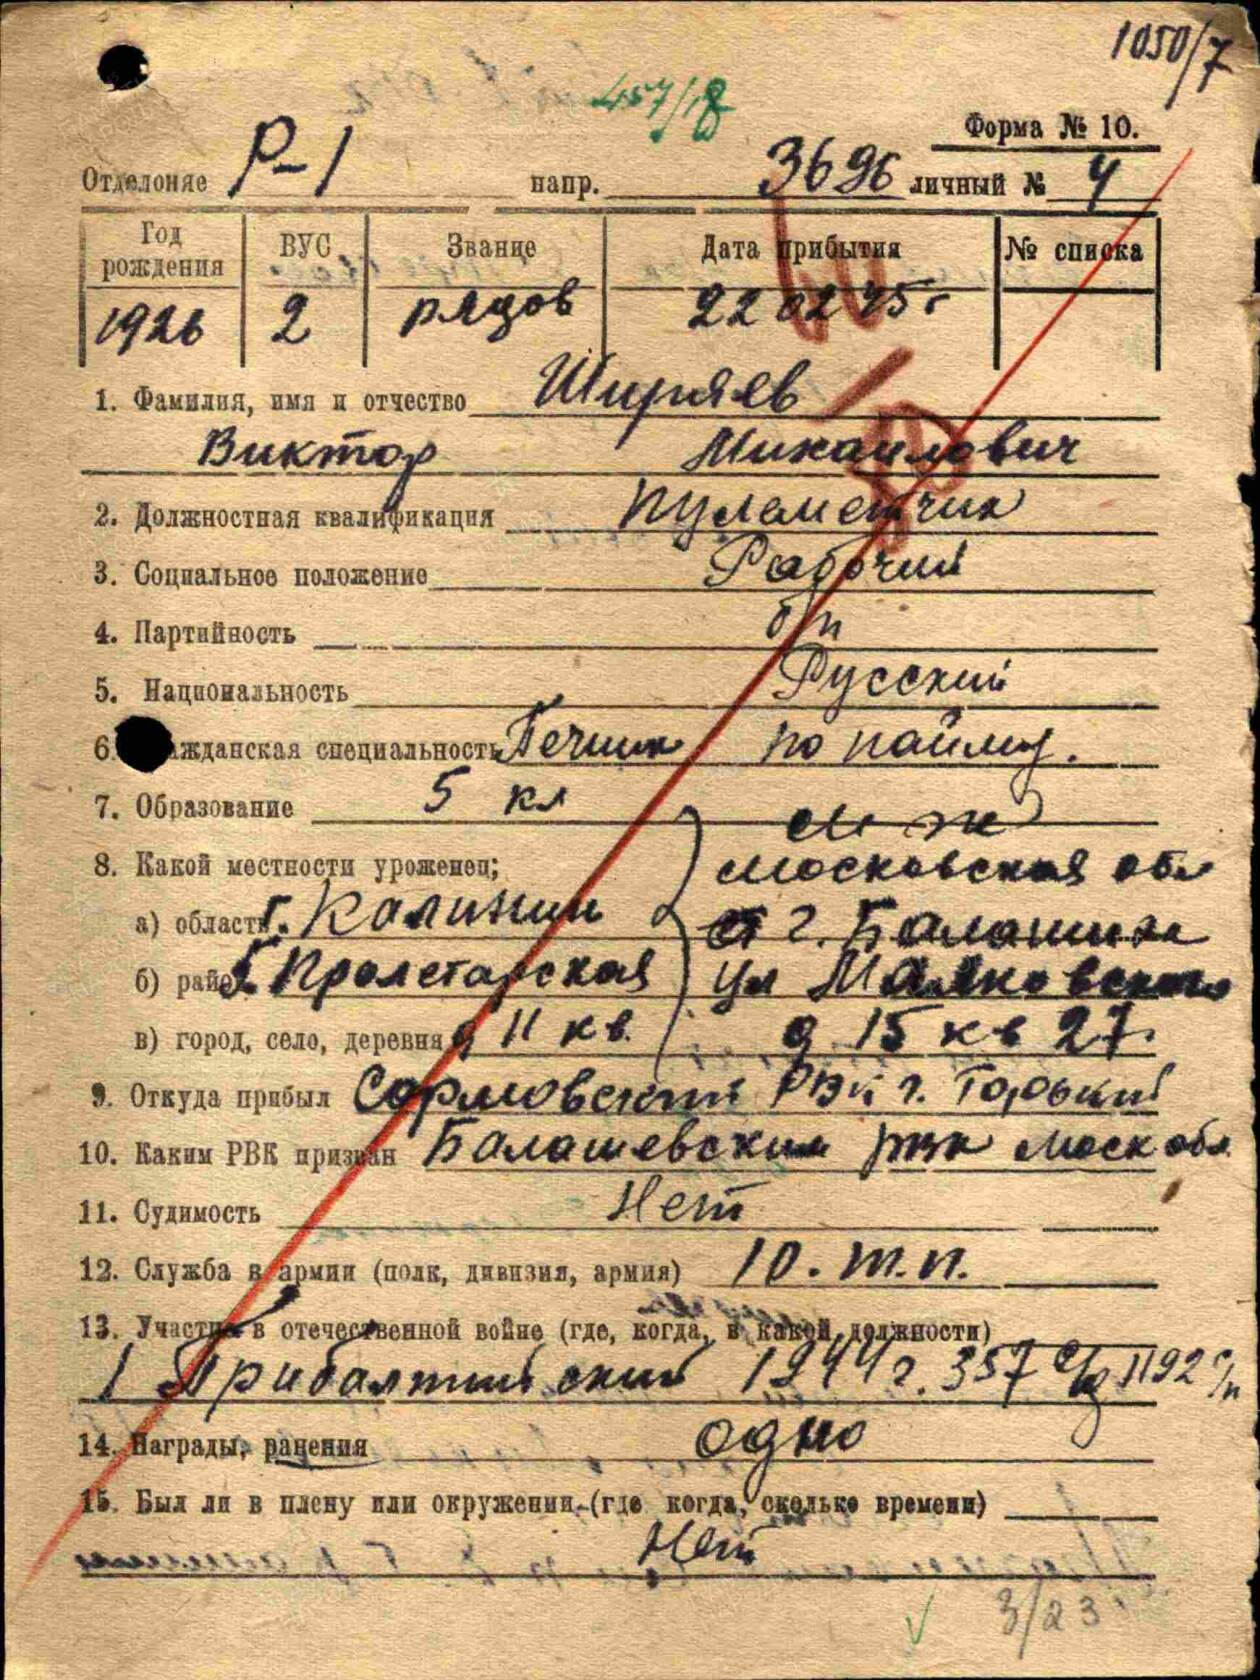 1050/7
457/18
Форма № 10.
Отделоняе Р-1 напр. 3696 личный № 4
Год рождения ВУС Званце Дата прибытия № списка
1926 2 рядов 22 02 45 г
1. Фамилия, имя и отчество Ширяев
Виктор Михаилович
2. Должностная квалификация пулеметчик
3. Социальное положение Рабочий
4. Партийность б/п
5. Национальность Русский
6. ажданская специальность Печник по найму.
7. Образование 5 кл
м ж
8. Какой местности уроженец; Московская обл
а) область г. Калинин г. Балашиха
б) райо Пролетарская ул Маяковского
в) город, село, деревня д 11 кв. д 15 кв 27.
9. Откуда прибыл Сормовский РВК г. Горький
10. Каким РВК призван Балашевским рвк Моск обл.
11. Судимость Нет
12. Служба в армии (полк, дивизия, армия) 10. т.п.
13. Участие в отечественной войне (где, когда, в какой должности)
1 Прибалтийский 1944 г. 357 с/д 1192 с/п
14. Награды, ранения одно
15. Был ли в плену или окружении (где когда, сколько времени)
Нет
3/23